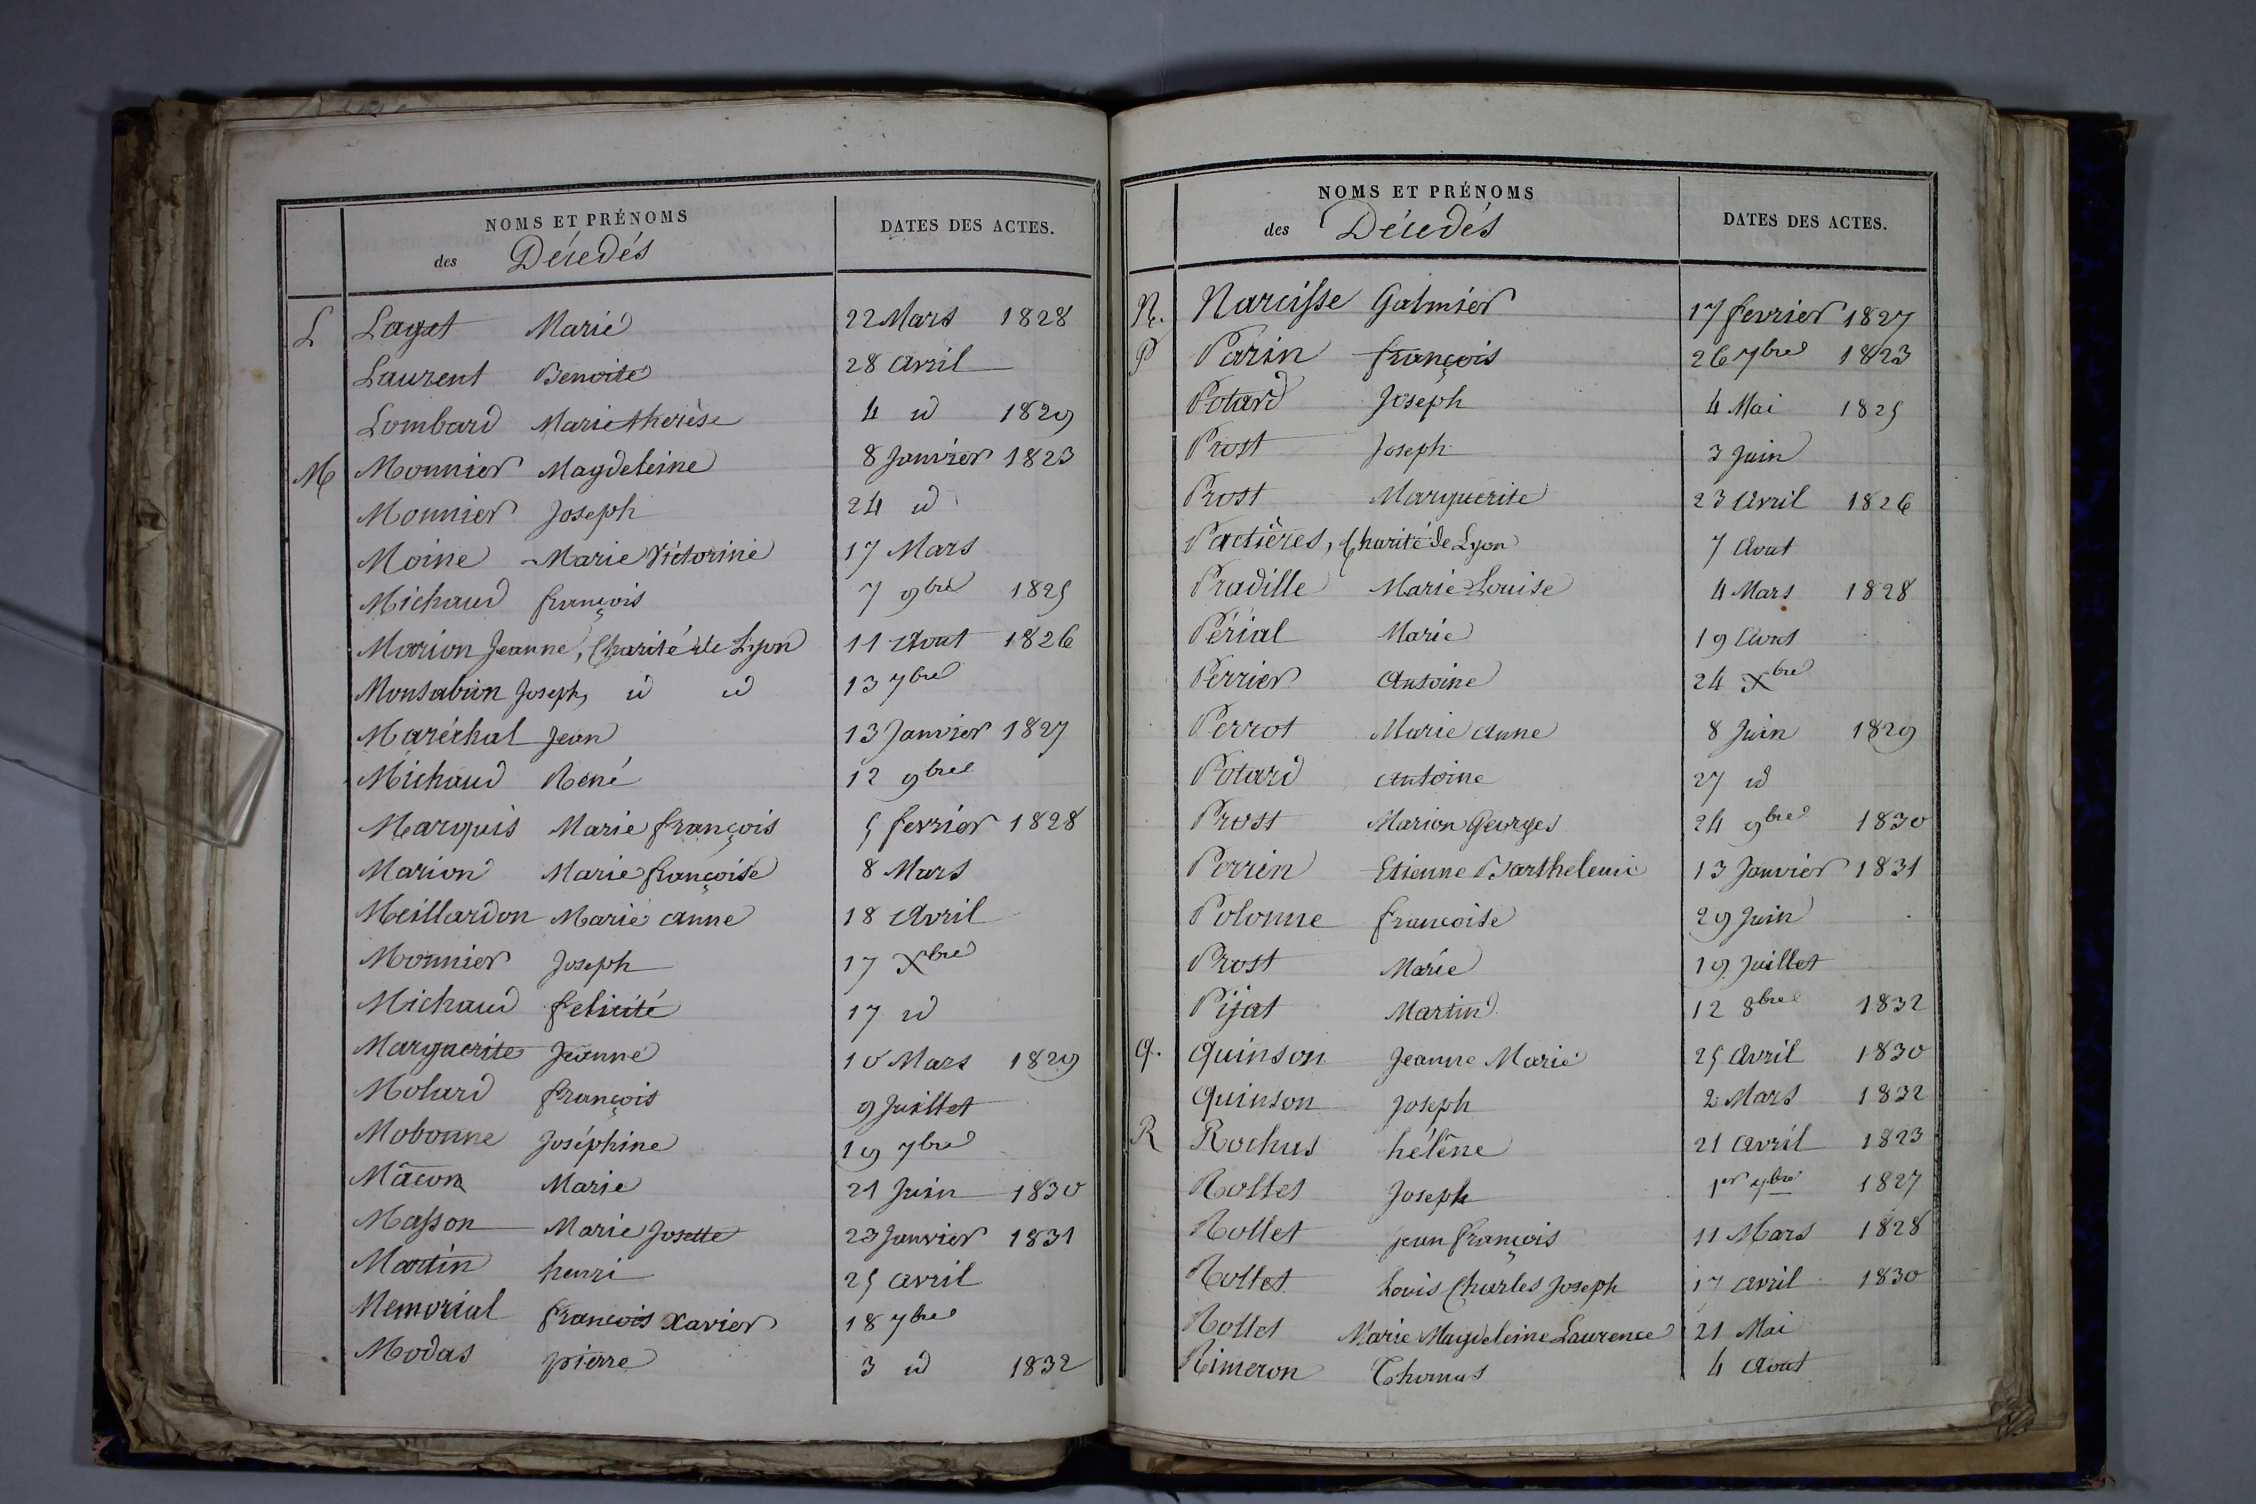 NOMS ET PRÉNOMS
des Décédés
DATES DES ACTES.
L Lagat Marie 22 Mars 1828
Laurent Benoite 28 avril
Lombard Marie therèse 4 id 1829
M Monnier Magdeleine 8 Janvier 1823
Monnier Joseph 24 id
Moine Marie Victorine 17 Mars
Michaud françois 7 9bre 1825
Marion Jeanne, Charité de Lyon 11 Aout 1826
Monsabin Joseph, id id 13 7bre
Maréchal Jean 13 Janvier 1827
Michaud René 12 9bre
Marquis Marie françois 5 fevrier 1828
Marion Marie françoise 8 Mars
Meillardon Marie anne 18 Avril
Monnier Joseph 17 Xbre
Michaud felicité 17 id
Marguerite Jeanne 10 Mars 1829
Molard françois 9 Juillet
Mobonne Joséphine 19 7bre
Mâcon Marie 21 Juin 1830
Masson Marie Josette 23 Janvier 1831
Martin henri 25 avril
Memorial francois Xavier 18 7bre
Modas pierre 3 id 1832
NOMS ET PRÉNOMS
des Décédés
DATES DES ACTES.
N. Narcisse Galmier 17 fevrier 1827
P Parin françois 26 7bre 1823
Potard Joseph 4 Mai 1825
Prost Joseph 3 Juin
Prost Marguerite 23 Avril 1826
Pactières, Charité de Lyon 7 Aout
Pradille Marie Louise 4 Mars 1828
Périal Marie 19 Aout
Perrier Antoine 24 Xbre
Perrot Marie anne 8 Juin 1829
Potard antoine 27 id
Prost Marion Georges 24 9bre 1830
Perrin Etienne Barthelemi 13 Janvier 1831
Polonne francoise 29 Juin
Prost Marie 19 Juillet
Pijat Martin 12 8bre 1832
Q. Quinson Jeanne Marie 25 Avril 1830
Quinson Joseph 2 Mars 1832
R Rochus hélène 21 avril 1823
Rollet Joseph 1er 7bre 1827
Rollet jean françois 11 Mars 1828
Rollet Louis Charles Joseph 17 avril 1830
Rollet Marie Magdeleine Laurence 21 Mai
Rimeron Thomas 4 Aout